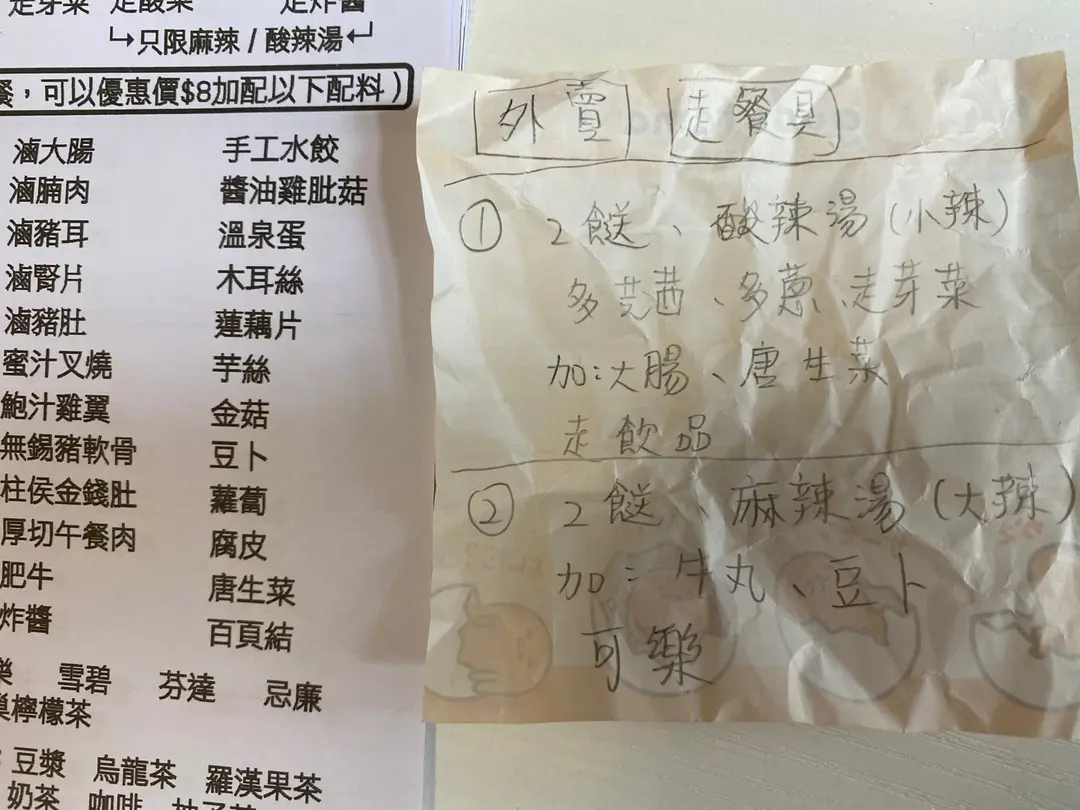 走芽菜 走酸菜 走炸醬
只限麻辣 / 酸辣湯
餐，可以優惠價$8加配以下配料）
滷大腸 手工水餃
滷腩肉 醬油雞肶菇
滷豬耳 溫泉蛋
滷腎片 木耳絲
滷豬肚 蓮藕片
蜜汁叉燒 芋絲
鮑汁雞翼 金菇
無錫豬軟骨 豆卜
柱侯金錢肚 蘿蔔
厚切午餐肉 腐皮
肥牛 唐生菜
炸醬 百頁結
樂 雪碧 芬達 忌廉
檸檬茶
豆漿 烏龍茶 羅漢果茶
奶茶 咖啡
外賣 走餐具
① 2餸、酸辣湯(小辣)
多芫茜、多蔥、走芽菜
加:大腸、唐生菜
走飲品
② 2餸、麻辣湯(大辣)
加:牛丸、豆卜
可樂